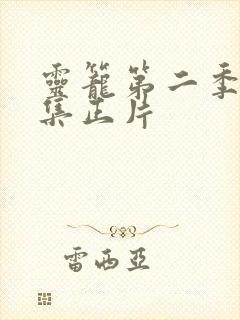 靈籠第二季
集正片
雷西亞